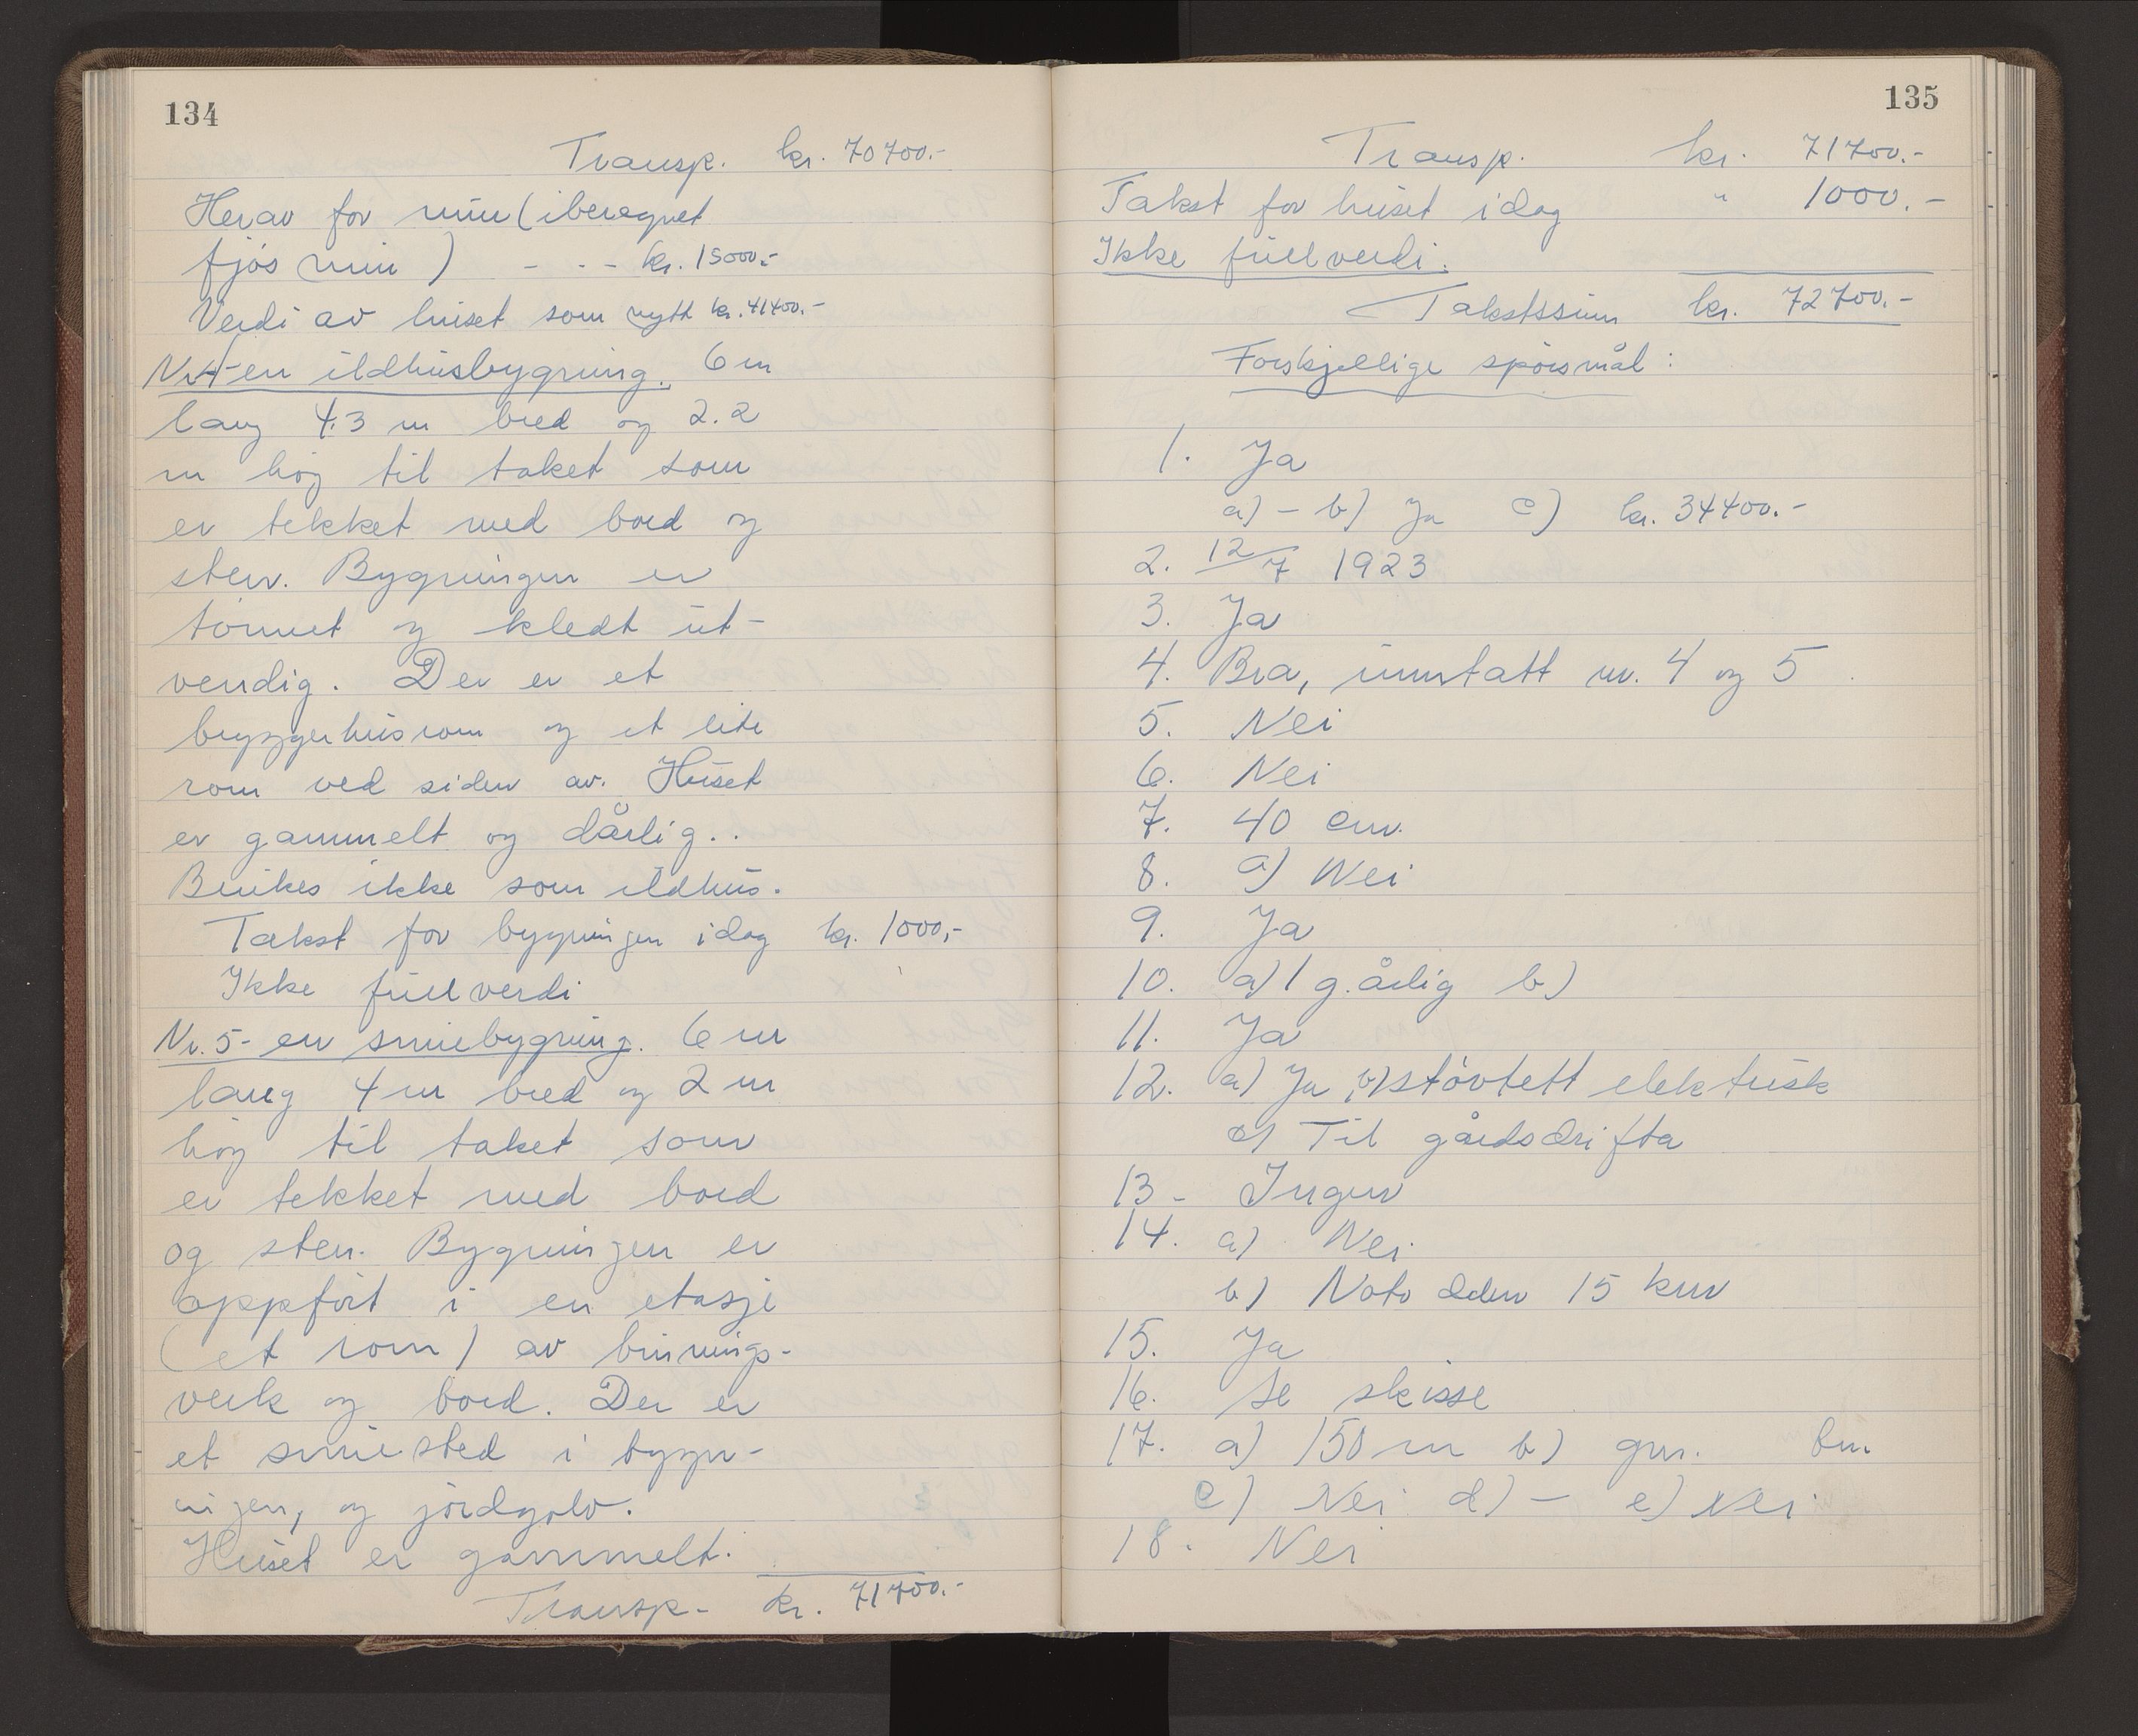 134
Transp. kr. 70700.-
Herav for mur (iberegnet
fjøs mur) - - - kr. 15000.-
Verdi av huset som nytt kr. 41400.-
Nr 4- en ildhusbygning. 6 m
lang 4.3 m bred og 2.2
m høg til taket som
er tekket med bord og
sten. Bygningen er
tømret og kledt ut-
vendig. Der er et
bryggerhusrom og et lite
rom ved siden av. Huset
er gammelt og dårlig..
Brukes ikke som ildhus.
Takst for bygningen idag kr. 1000,-
Ikke full verdi
Nr. 5- en smiebygning. 6 m
lang 4 m bred og 2 m
høg til taket som
er tekket med bord
og sten. Bygningen er
oppført i en etasje
(et rom) av binnings-
verk og bord. Der er
et smiested i bygn-
ingen, og jordgolv.
Huset er gammelt.
Transp- kr. 71700.-
135
Transp. kr. 71700.-
Takst for huset idag " 1000.-
Ikke full verdi.
Takstssum kr. 72700.-
Forskjellige spørsmål:
1. Ja
a) - b) Ja c) kr. 34400.-
2. 12/7 1923
3. Ja
4. Bra, unntatt nr. 4 og 5
5. Nei
6. Nei
7. 40 cm.
8. a) Nei
9. Ja
10. a) 1 g. årlig b)
11. Ja
12. a) Ja b) støvtett elektrisk
c) Til gårdsdrifta
13- Ingen
14. a) Nei
b) Notodden 15 km
15. Ja
16. Se skisse
17. a) 150 m b) gnr. bnr.
c) Nei d) - e) Nei
18. Nei